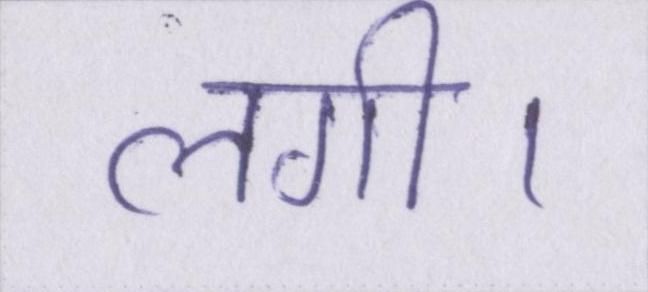 लगी।